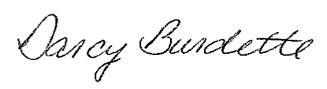 Darcy Burdette